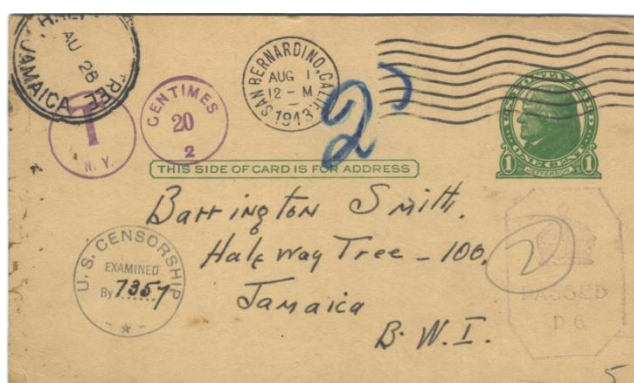 AU 26
JAMAICA TREE
T
N.Y.
CENTIMES
20
2
SAN BERNARDINO, CALIF.
AUG 1
12 - M
1943
2
1 ONE CENT 1
JEFFERSON
THIS SIDE OF CARD IS FOR ADDRESS
Barrington Smith.
Half Way Tree - 100.
Jamaica
B.W.I.
U.S. CENSORSHIP
EXAMINED
By 7357
2
PASSED
D 6
5